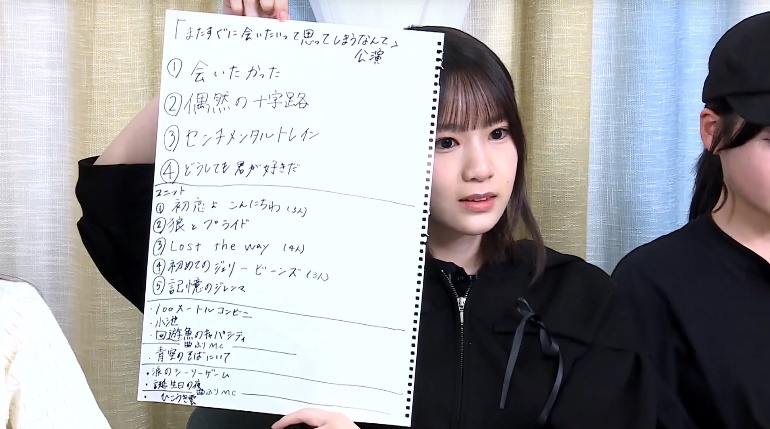 「またすぐに会いたいって思ってしまうなんて」
公演
① 会いたかった
② 偶然の十字路
③ センチメンタルトレイン
④ どうしても君が好きだ
ユニット
① 初恋よ こんにちわ (3人)
② 狼とプライド
③ Lost the way (4人)
④ 初めてのジェリービーンズ (3人)
⑤ 記憶のジレンマ
・100メートルコンビニ
・小池
・回遊魚のキャパシティ
曲ふりMC
・青空のそばにいて
・涙のシーソーゲーム
・誕生日の夜
曲ふりMC
・ひこうき雲